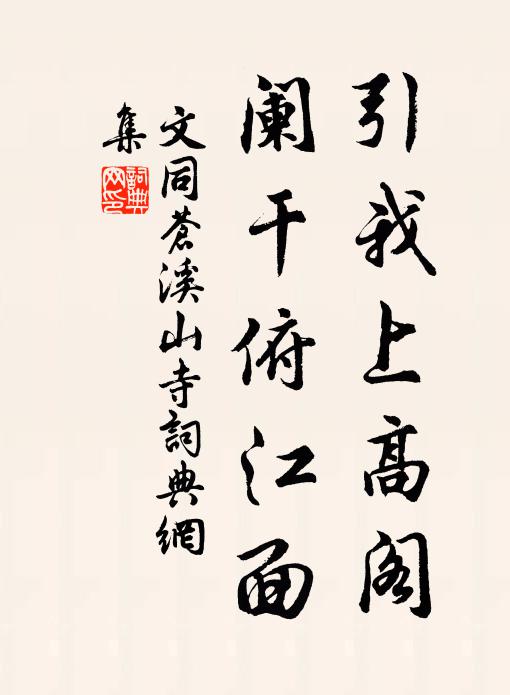 引我上高阁
阑干俯江面
文同蒼溪山寺詞典網
集
詞典网印